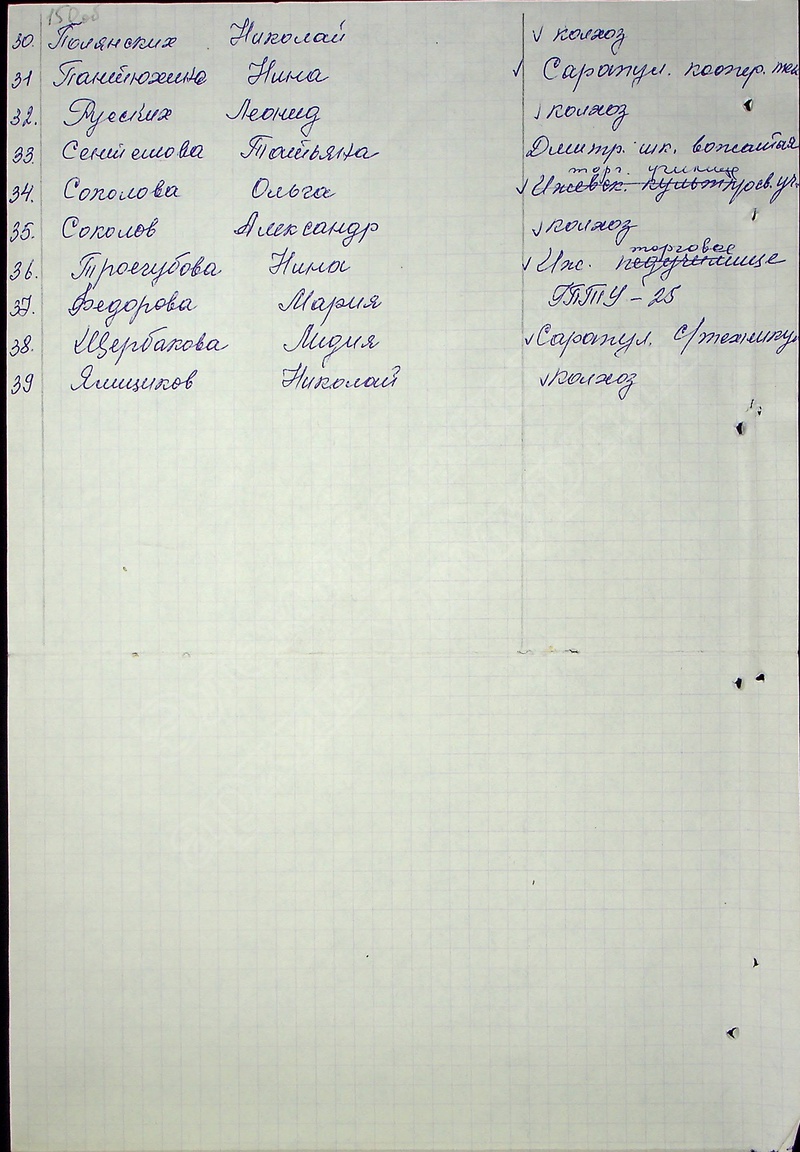 150об
30. Полянских Николай √ колхоз
31 Пантюхина Нина √ Сарапул. коопер. тех
32. Русских Леонид √ колхоз
33 Сентемова Татьяна Дмитр. шк. вожатая
торг. училище
34. Соколова Ольга √ Ижевск. культпросв. уч.
35. Соколов Александр √ колхоз
торговое
36. Трегубова Нина √ Иж. педучилище
37. Федорова Мария ГПТУ - 25
38. Щербакова Лидия √ Сарапул. с/технику
39 Ямщиков Николай √ колхоз